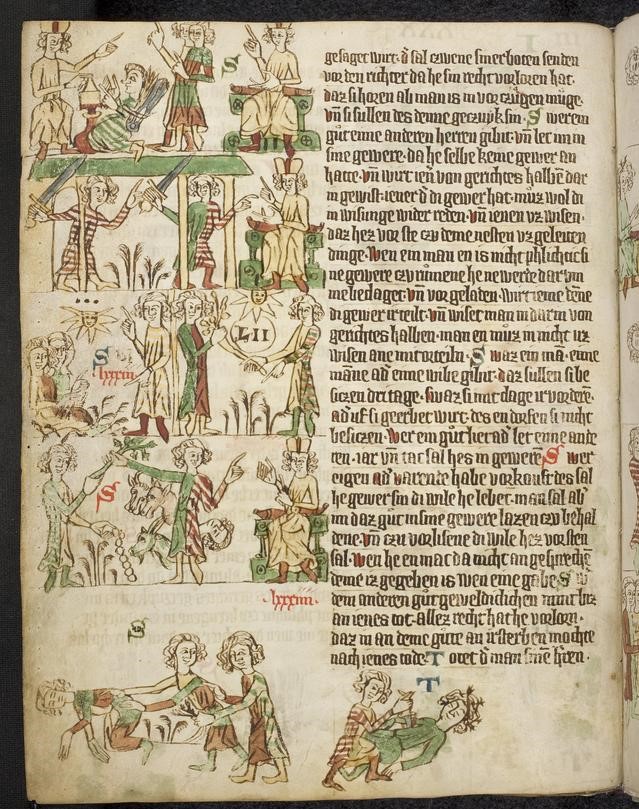 S
LII
S
lxxxiii
S
lxxxiiii
S
T
gesaget wurt. d sal czwene siner boten senden
vor den richter da he sin recht vorloren hat.
daz si horen ab man is in vorczugen muge.
vn si sullen des denne geczuyk sin. S werein
gut eime anderen herren gibit. vn let in in
sine gewere. da he selbe keine gewer an
hatte. vn wurt ien von gerichtes halben dar
in gewist. iener d di gewer hat. muz wol di
in wisunge wider reden. vn ienen vz wisen.
daz hez vor ste czu deme nesten vz geleiten
dinge. Wen ein man en is nicht phlichtic si
ne gewere czu rumene he ne werde darum
me beclaget. vn vor geladen. Wirt ieme dene
di gewer irteilt. vn wiset man in dar in von
gerichtes halben. man en muz in nicht uz
wisen ane mit orteiln. S waz ein man eime
manne ad eime wibe gibit. daz sullen si be
siczen dri tage. swaz si mit clage irvorderen
ad uf si geerbet wirt. des en dorfen si nicht
besiczen. Wer ein gut liet ad let eime ande
ren. iar vn tac sal hes in geweren. S wer
eigen ad varende habe vorkouft des sal
he gewer sin di wile he lebet. man sal ab
im daz gut in sine gewere lazen czu behal
dene. vn czu vorlisene di wile hez vorsten
sal. wen he en mac da nicht an gesprechen
deme iz gegeben is wen eine gabe. S w
dem anderen gut geweldiclichen nimt biz
an ienes tot. allez recht hat he vorlorn.
daz im an deme gute an irsterben mochte
nach ienes tode. T otet d man sinen hren.